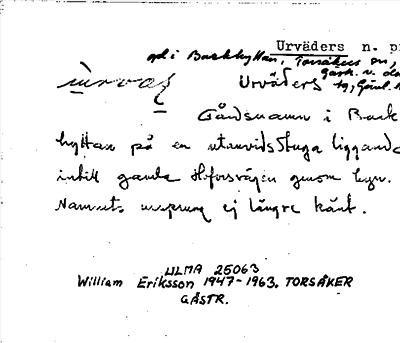 Urväders n. p
gd i Backhyttan, Torsåkers sn,
Gästr. v. do
Urväders tg, Gävl.
Gårdsnamn i Back
hyttan på en utanvidsstuga liggande
intill gamla Hoforsvägen genom byn.
Namnets ursprung ej längre känt.
ULMA 25063
William Eriksson 1947-1963. TORSÅKER
GÄSTR.